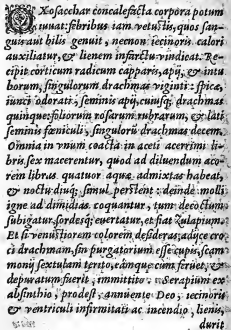 OXosacchar concalefacta corpora potum
iuuat: febribus iam vetustis, quos san-
guis aut bilis genuit, necnon iecinoris calori
auxiliatur, & lienem infarctu vindicat. Re-
cipit corticum radicum capparis, apij, & intu
borum, singulorum drachmas viginti: spicæ,
iunci odorati, seminis apij, cuiusq; drachmas
quinque: foliorum rosarum rubrarum, & lati
seminis fœniculi, singulorū drachmas decem.
Omnia in vnum coacta in aceti acerrimi li-
bris sex macerentur, quod ad diluendum aco-
rem libras quatuor aquæ admixtas habeat,
& noctu diuq; simul perstent: deinde molli
igne ad dimidias coquantur, tum decoctum
subigatur, sordesq; euertatur, et fiat Zulapium.
Et si venustiorem colorem desideras, adijce cro
ci drachmam, sin purgatorium esse cupis, scam
monij sextulam tertio, eamque cum feruet, &
depuratum fuerit, immittito. Serapium ex
absinthio, prodest, annuente Deo, iecinoris
& ventriculi infirmitati ac incendio, lienis,
durit